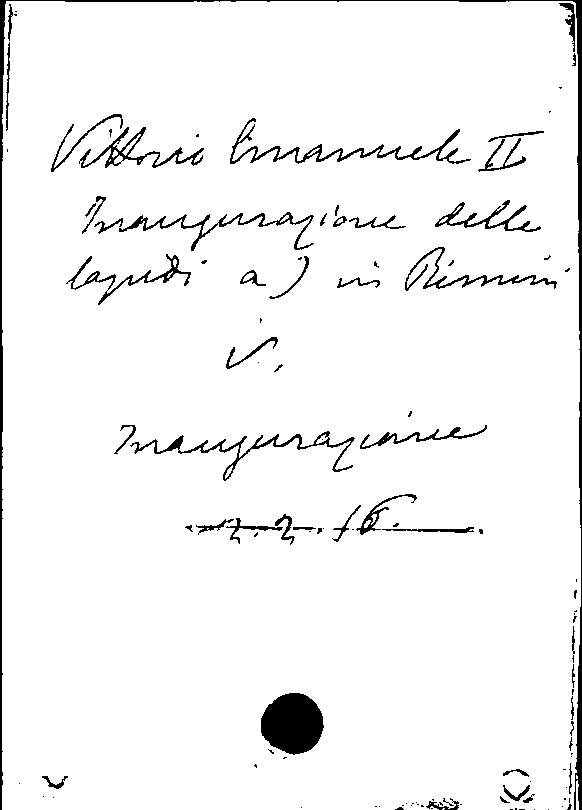 Vittorio Emanuele II
Inaugurazione delle
lapidi a) in Rimini
V.
Inaugurazione